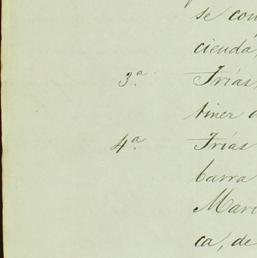 se con
cienda,
3.ª Frías,
tiner a
4.ª Frías
barra
Mari
ca, de